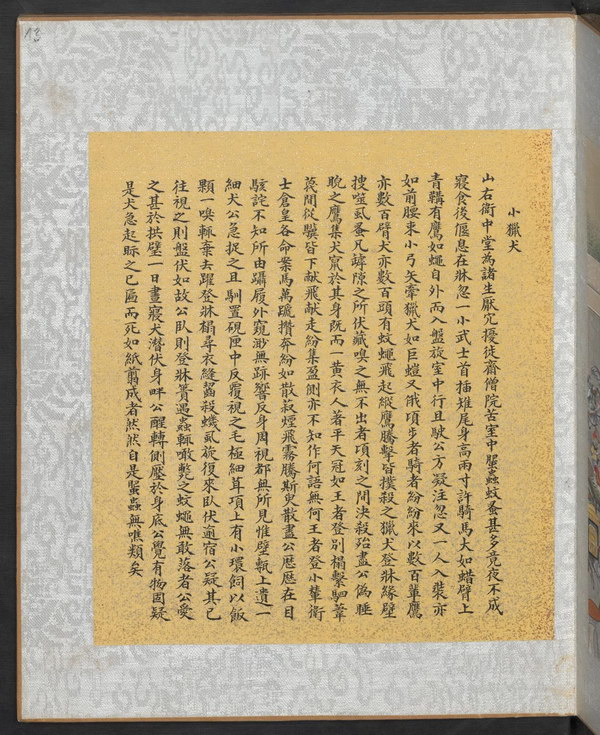 13
小獵犬
山右衛中堂為諸生厭冗擾徙齋僧院苦室中蜰蟲蚊蚤甚多竟夜不成
寢食後偃息在牀忽一小武士首插雉尾身高兩寸許騎馬大如蜡臂上
青鞲有鷹如蠅自外而入盤旋室中行且駛公方凝注忽又一人入裝亦
如前腰束小弓矢牽獵犬如巨螘又俄頃步者騎者紛紛來以數百輩鷹
亦數百臂犬亦數百頭有蚊蠅飛起縱鷹騰擊皆撲殺之獵犬登牀緣壁
搜噬虱蚤凡罅隙之所伏藏嗅之無不出者頃刻之間決殺殆盡公偽睡
睨之鷹集犬竄於其身既而一黃衣人著平天冠如王者登別榻繫駟葦
篾間從騎皆下獻飛獻走紛集盈側亦不知作何語無何王者登小輦衛
士倉皇各命鞍馬萬蹄攢奔紛如撒菽煙飛霧騰斯臾散盡公歷歷在目
駭詫不知所由躡履外窺渺無跡響反身周視都無所見惟壁甎上遺一
細犬公急捉之且馴置硯匣中反覆視之毛極細茸項上有小環飼以飯
顆一嗅輒棄去躍登牀榻尋衣縫齧殺蟣虱旋復來臥伏逾宿公疑其已
往視之則盤伏如故公臥則登牀簀遇蟲輒噉斃之蚊蠅無敢落者公愛
之甚於拱璧一日晝寢犬潛伏身畔公醒轉側壓於身底公覺有物固疑
是犬急起眎之已匾而死如紙翦成者然然自是蜰蟲無噍類矣